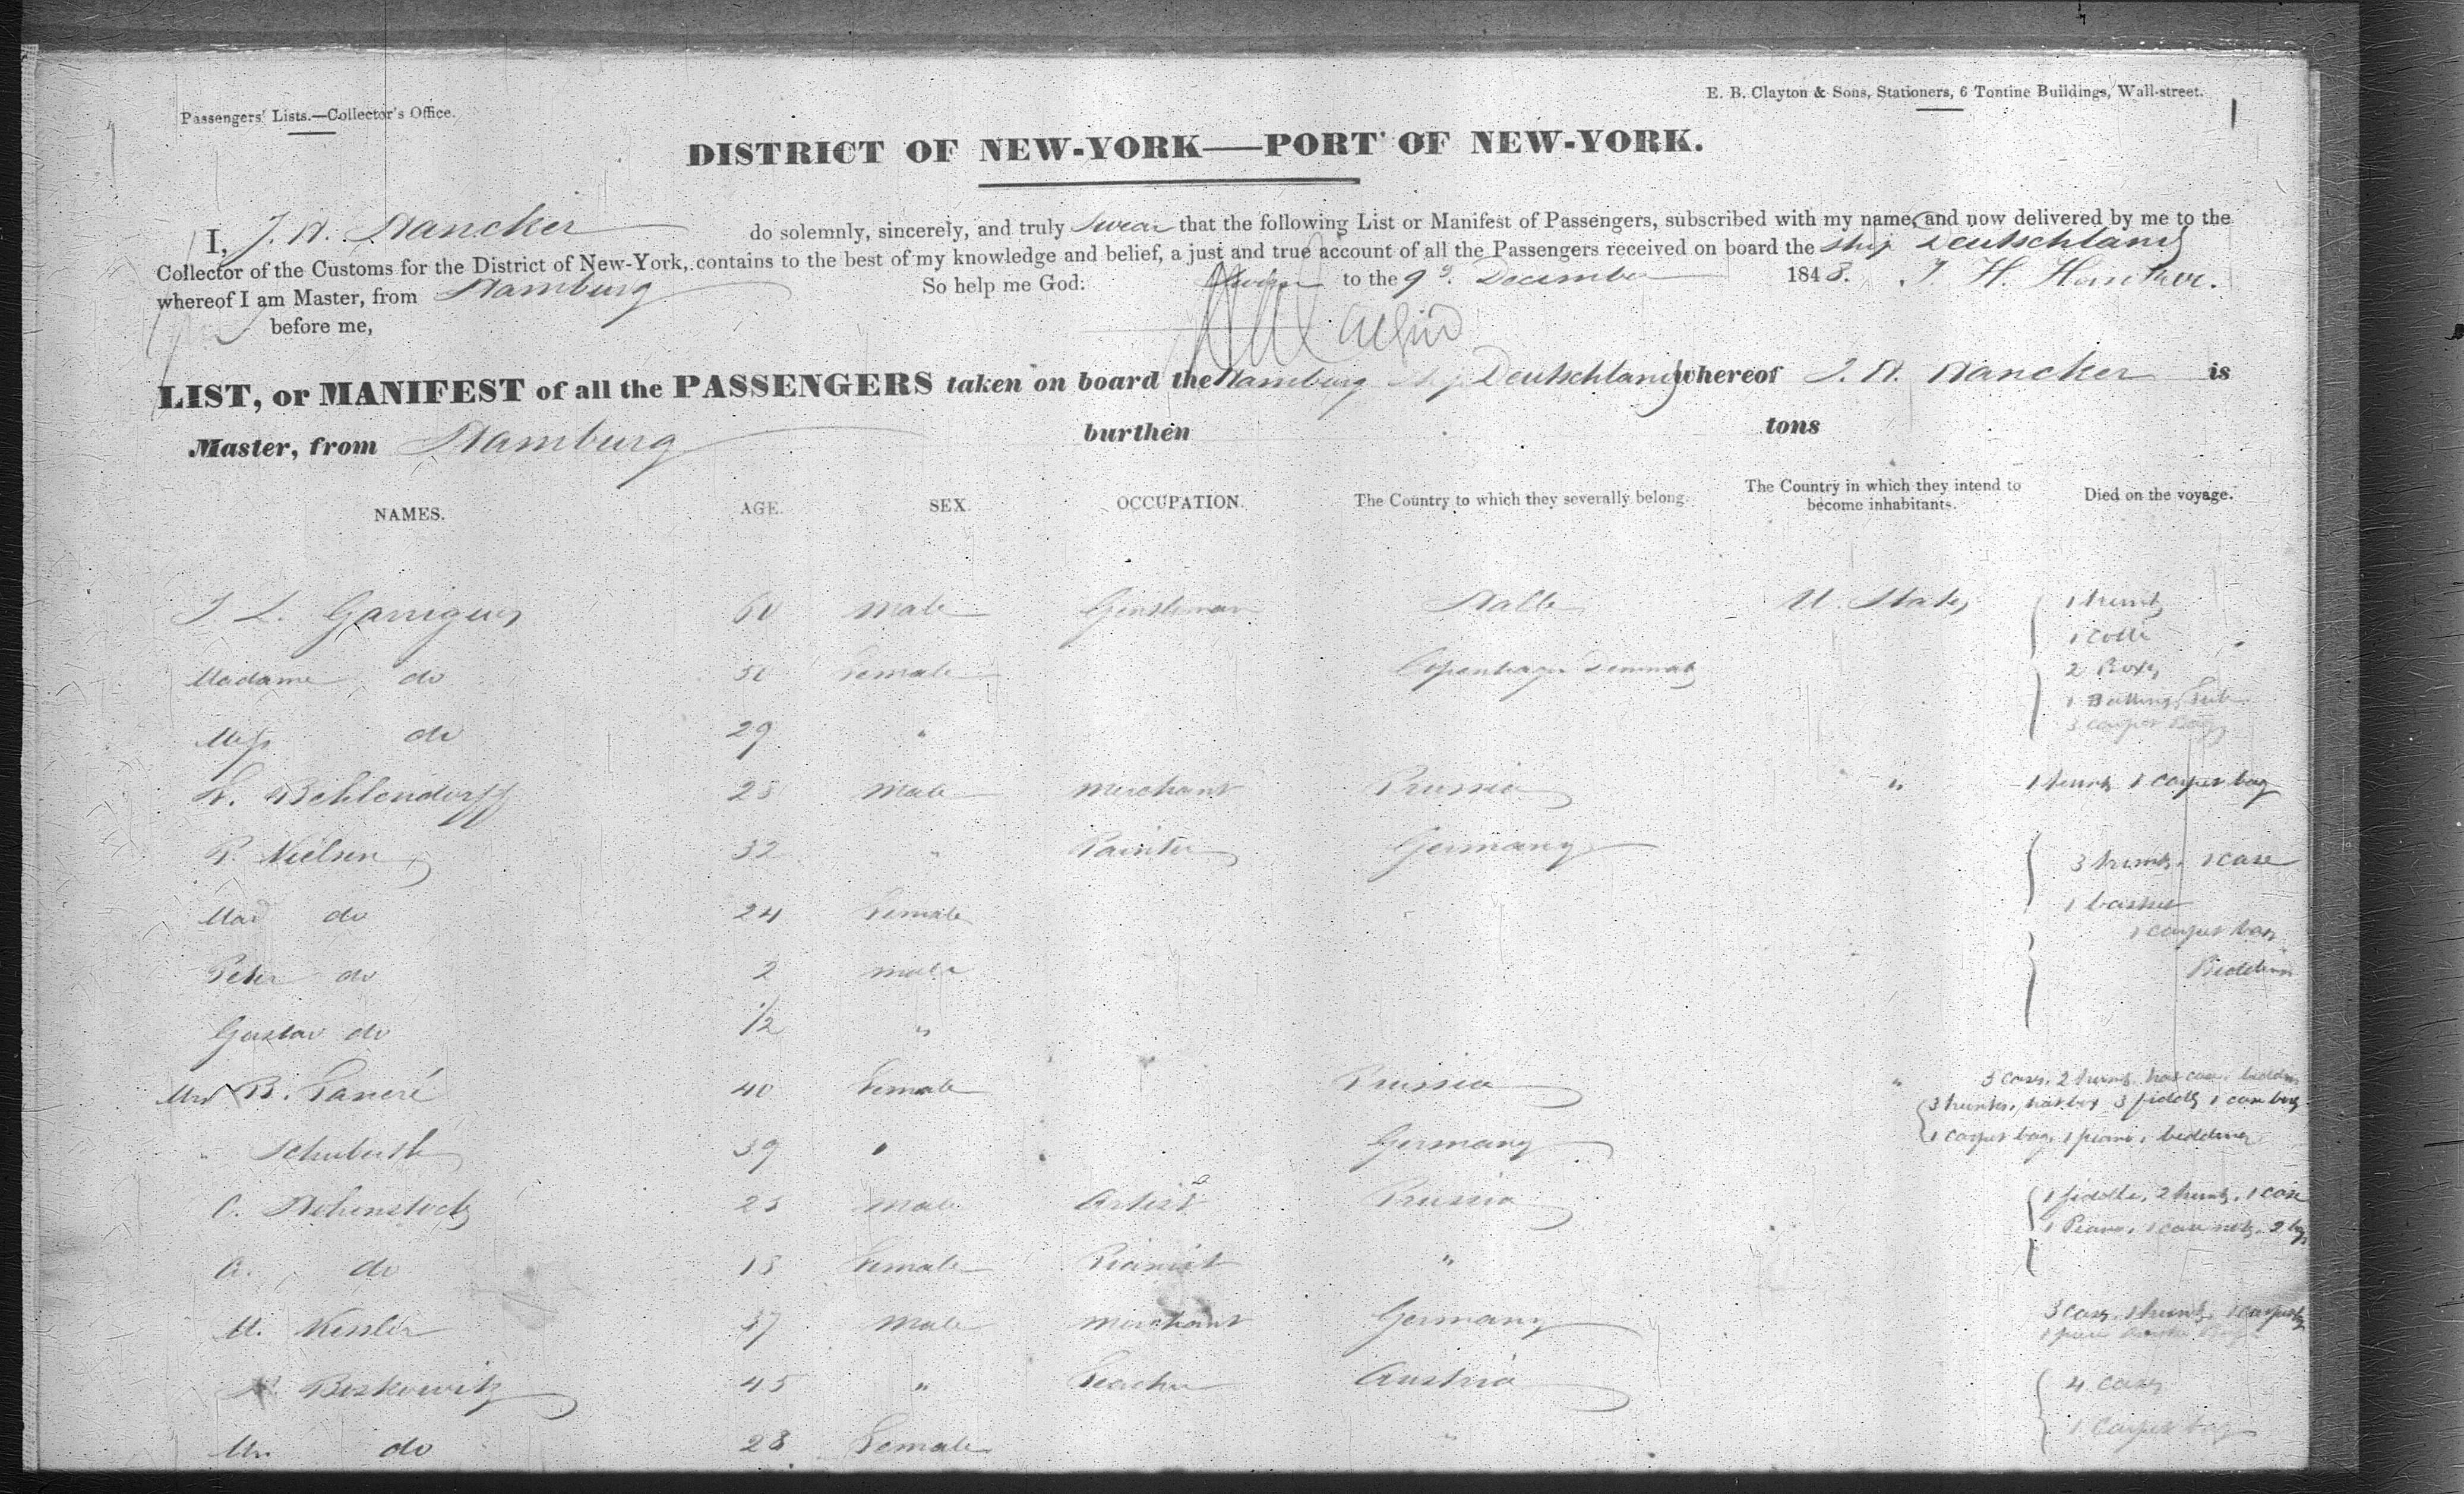 Passengers' Lists.—Collector's Office.
E. B. Clayton & Sons, Stationers, 6 Tontine Buildings, Wall-street.
DISTRICT OF NEW-YORK—PORT OF NEW-YORK.
I, J. H. Hancker do solemnly, sincerely, and truly swear that the following List or Manifest of Passengers, subscribed with my name, and now delivered by me to the
Collector of the Customs for the District of New-York, contains to the best of my knowledge and belief, a just and true account of all the Passengers received on board the ship Deutschland
whereof I am Master, from Hamburg So help me God: to the 9 December 1848.
before me,
LIST, or MANIFEST of all the PASSENGERS taken on board the Hamburg Ship Deutschland whereof J. H. Hancker is
Master, from Hamburg burthen tons
NAMES. AGE. SEX. OCCUPATION. The Country to which they severally belong. The Country in which they intend to become inhabitants. Died on the voyage.
J L. Garrigues 60 male Gentleman Halle U. States 1 trunk
1 Colli
Madame do 50 female Copenhagen Denmark 2 Boxes
1 Bathing tub
3 carpet bags
Miss do 29 "
Behlendorff 25 male merchant Prussia " 1 trunk 1 carpet bag
P. Nielsen 32 " Painter Germany 3 trunks. 1 case
Mad do 24 female 1 basket
1 carpet bag
Peter do 2 male Bedding
Gustav do 1/2 "
Mrs B. 40 female Prussia " 3 cases, 2 trunks hat case bedding
3 trunks, hat box 3 fiddles 1
" Schuberth 39 " Germany 1 carpet bag, 1 piano, bedding
C. Hohnstock 25 male Artist Prussia 1 fiddle, 2 trunks, 1 case
1 Piano, 1 case
A. do 18 female Pianist "
M. Kessler 37 male merchant Germany 3 cases, 1 trunk,
Boskowitz 45 " Teacher Austria 4 cases
1 Carpet bag
do 28 female "